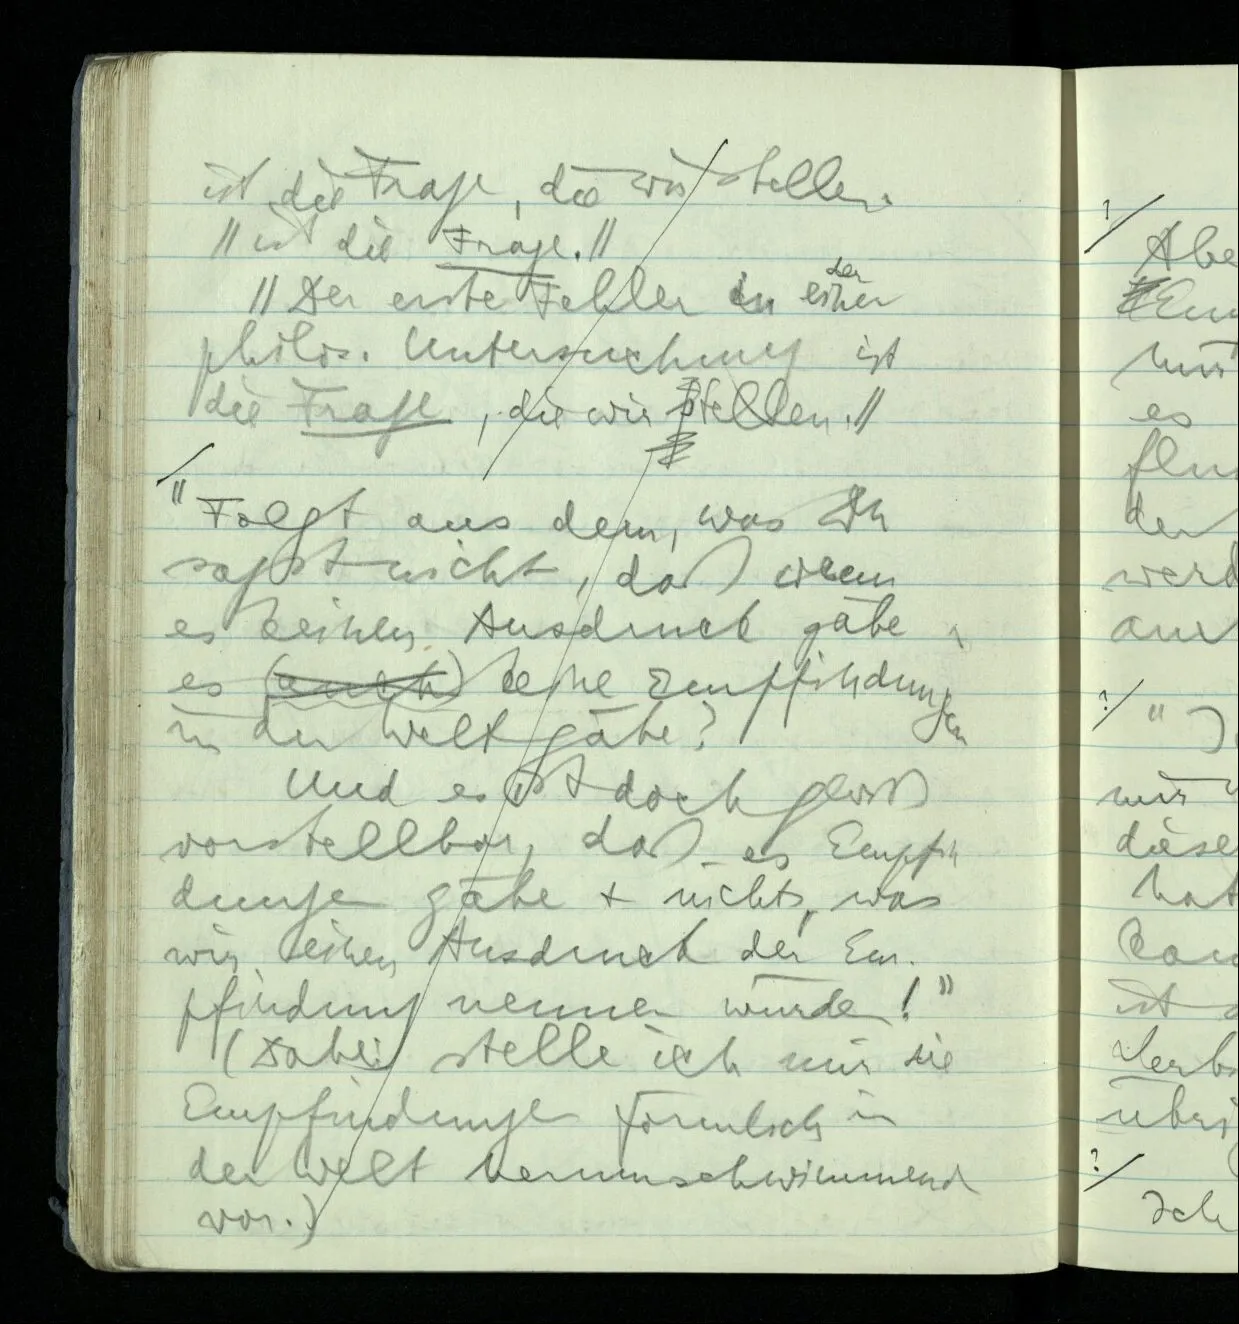 ist die Frage, die wir stellen.
// ist die Frage. //
// Der erste Fehler in einer der
philos. Untersuchung ist
die Frage, die wir stellen. //
/
"Folgt aus dem, was Du
sagst nicht, daß wenn
es keinen Ausdruck gäbe
es (auch) keine Empfindungen
in der Welt gäbe?
Und es ist doch gewiß
vorstellbar, daß es Empfin
dungen gäbe + nichts, was
wir einen Ausdruck der Em-
pfindung nennen würden!"
(Dabei stelle ich mir die
Empfindungen förmlich in
der Welt herumschwimmend
vor.)
?/
Abe
mir
es
flu
der
werd
?/
mir
diese
hat
ist
über
?/
Ich